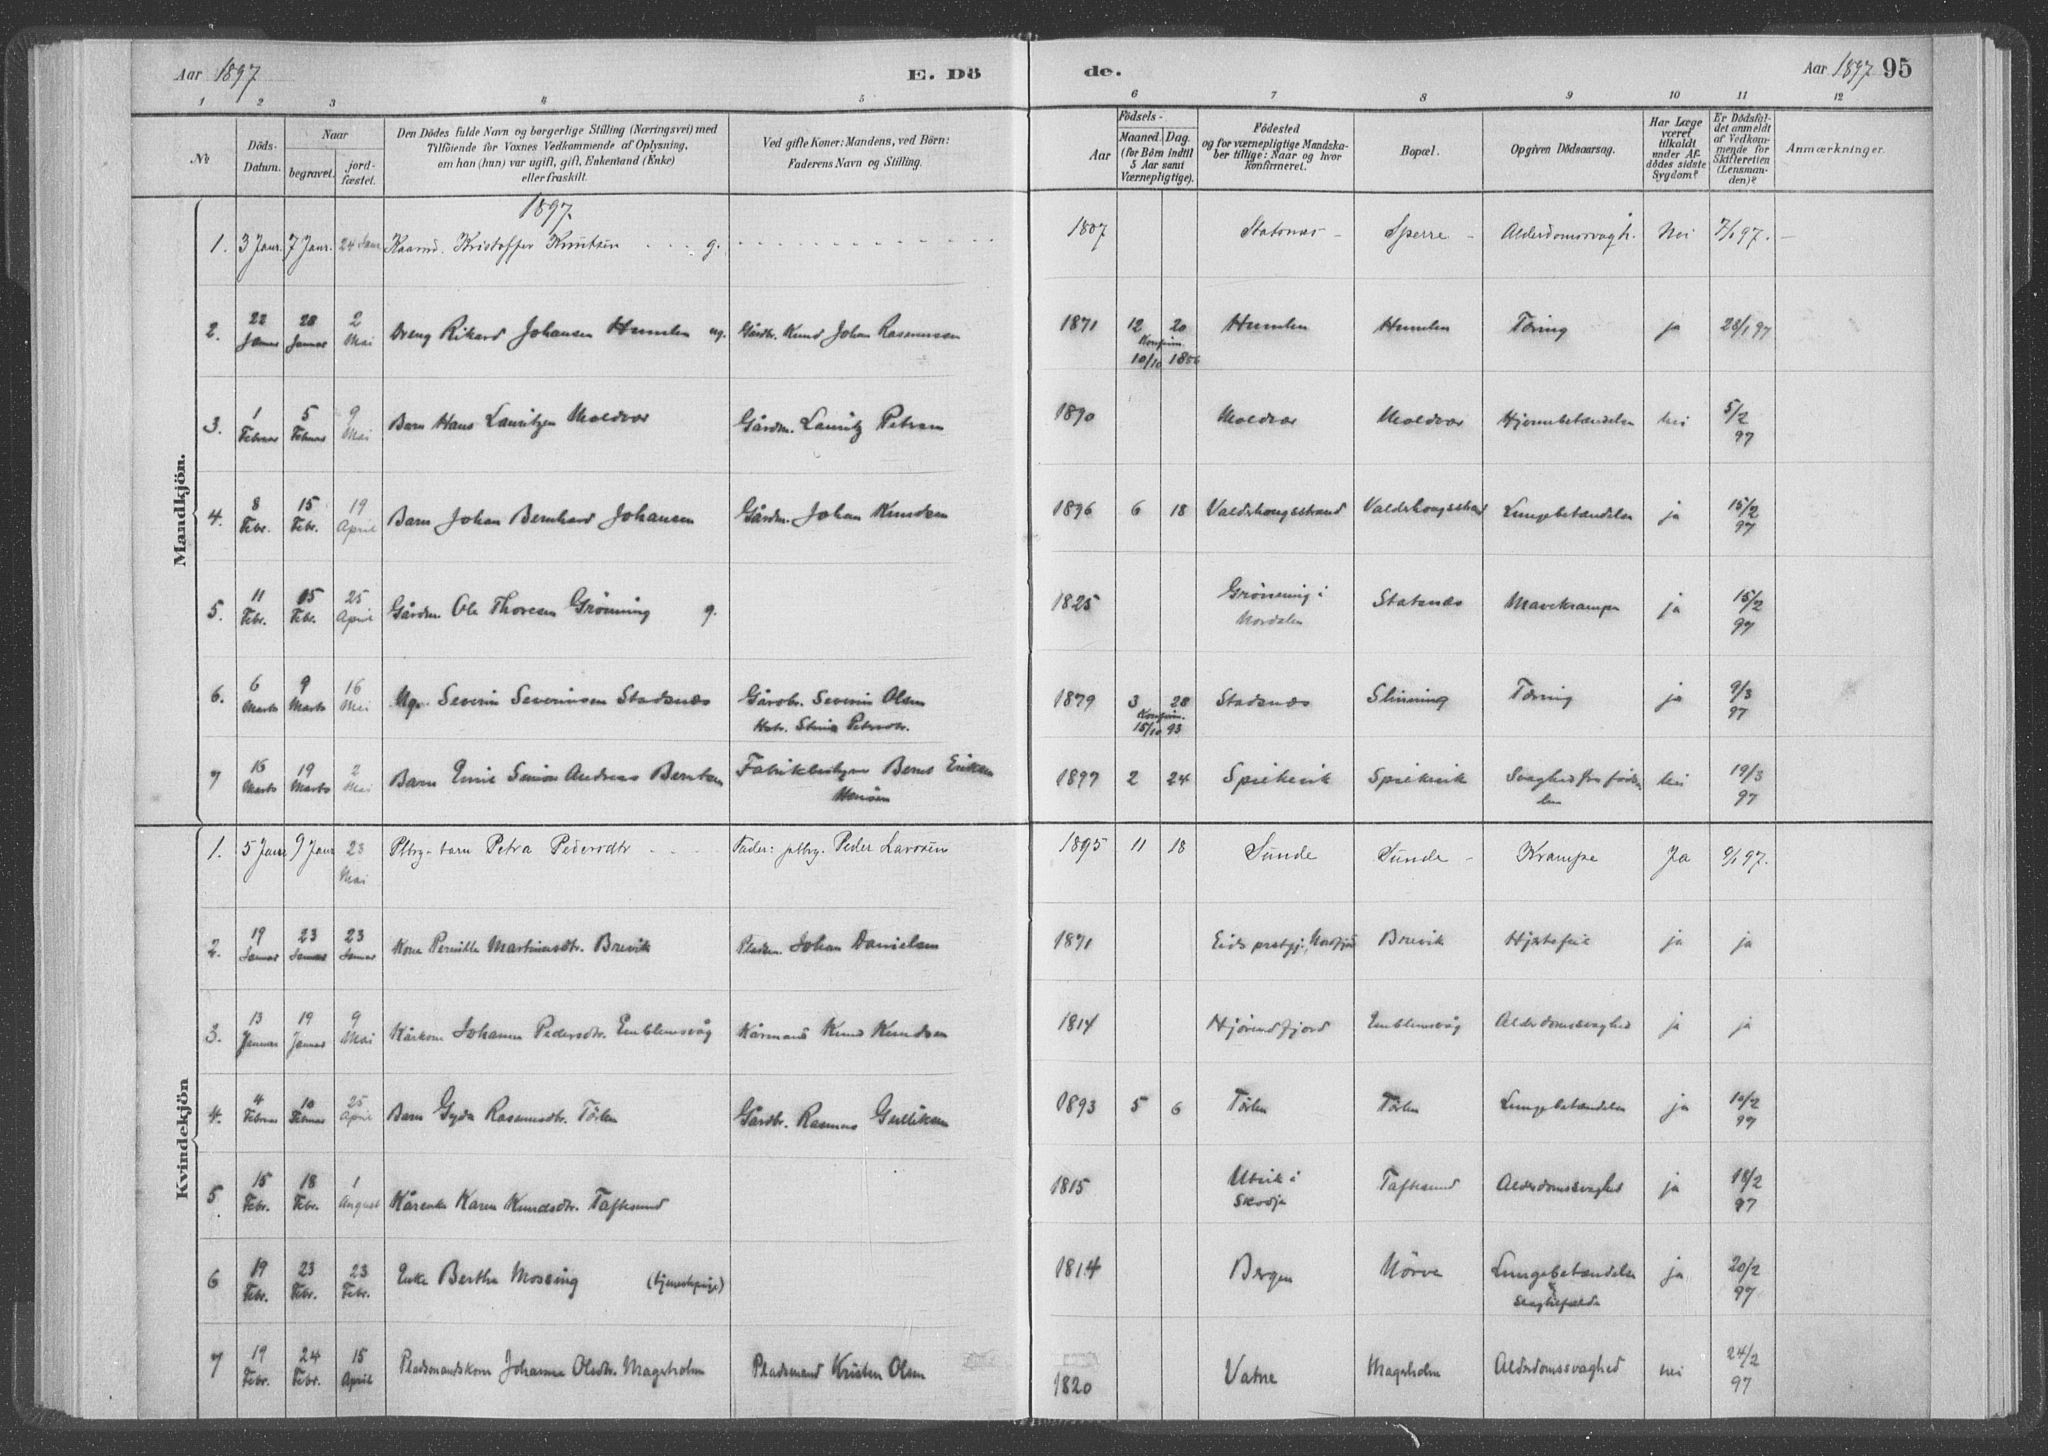 Aar 1897
E. Dö
de.
Aar 1897 95
1 2 3 4 5 6 7 8 9 10 11 12
No
Döds-Datum.
Naar
begravet.
jordfæstet.
Den Dödes fulde Navn og borgerlige Stilling (Næringsvei) med
Tilföiende for Voxnes Vedkommende af Oplysning,
om han (hun) var ugift, gift, Enkemand (Enke)
eller fraskilt.
Ved gifte Koner: Mandens, ved Börn:
Faderens Navn og Stilling.
Födsels-
Aar
Maaned. Dag.
(for Börn indtil
5 Aar samt
Værnepligtige).
Födested
og for værnepligtige Mandskaber tillige: Naar og hvor
konfirmeret.
Bopæl.
Opgiven Dödsaarsag.
Har Læge
været
tilkaldt
under Afdödes sidste
Sygdom?
Er Dödsfaldet anmeldt
af Vedkommende for
Skifteretten
(Lensmanden)?
Anmærkninger.
Mandkjön.
1897.
1. 3 Janr. 7 Janr. 24 Janr Kaarmd. Kristoffer Knutsen g. 1807 Statsnæs Sperre Alderdomssvagh. Nei 7/1 97.
2. 22 Januar 28 Januar 2 Mai Dreng Rikard Johansen Humlen ug. Gårdbr. Knud Johan Rasmussen 1871 12 20 Humlen Humlen Tæring ja 28/1 97
Konfirm. 10/10 1886
3. 1 Februar 5 Februar 9 Mai Barn Hans Lauritzen Moldvær Gårdm. Lauritz Petersen 1890 Moldvær Moldvær Hjernebetændelse nei 5/2 97
4. 8 Febr. 15 Febr. 19 April Barn Johan Bernhard Johansen Gårdm. Johan Knudsen 1896 6 18 Valderhougsstrand Valderhougsstrand Lungebetændelse ja 15/2 97
5. 11 Febr. 15 Febr. 25 April Gårdm. Ole Thoresen Grönning g. 1825 Grönning i Nordalen Statsnæs Mavekrampe ja 15/2 97
6. 6 Marts 9 Marts 16 Mai Ug. Severin Severinsen Stadsnæs Gårdbr. Severin Olsen 1879 3 28 Stadsnæs Slinning Tæring ja 9/3 97
Hstr. Stina Petersdtr. Konfirm. 15/10 93
7 16 Marts 19 Marts 2 Mai Barn Emil Simon Andreas Berntsen Fabrikbestyrer Bernt Eriksen Hansen 1897 2 24 Spjelkevik Spjelkevik Svaghed fra fødselen nei 19/3 97
Kvindekjön
1. 5 Janr 9 Janr 23 Mai Pltsg. barn Petra Pedersdtr Fader: pltsg. Peder Larssen 1895 11 18 Sunde Sunde Krampe Ja 9/1 97.
2. 19 Januar 23 Januar 23 Januar Kone Pernille Martinusdtr. Brevik Pladsm. Johan Danielsen 1871 Eids prstgj., Nordfjord Brevik Hjertefeil ja ja
3. 13 Januar 19 Januar 9 Mai Kårkone Johanne Pedersdtr. Emblemsvåg Kårmand Knud Knudsen 1814 Hjörundfjord Emblemsvåg Alderdomssvaghed ja ja
4. 4 Februar 10 Februar 25 April Barn Gyda Rasmusdtr. Törlen Gårdbr. Rasmus Gulliksen 1893 5 6 Törlen Törlen Lungebetændelse ja 10/2 97
5 15 Febr. 18 Febr. 1 August Kårenke Karen Knudsdtr. Taftesund 1815 Utvik i Skodje Taftesund Alderdomssvaghed ja 18/2 97
6 19 Febr. 23 Febr. 23 Febr. Enke Berthe Mossing 1814 Bergen Nörve Lungebetændelse ja 20/2 97
7 19 Febr. 24 Febr. 15 April Pladsmandskone Johanne Olsdtr. Magerholm Pladsmand Kristen Olsen 1820 Vatne Magerholm Alderdomssvaghed nei 24/2 97